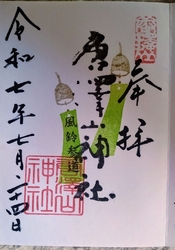 奉拝
唐澤山神社
風鈴参道
唐澤山神社
令和七年七月二十四日